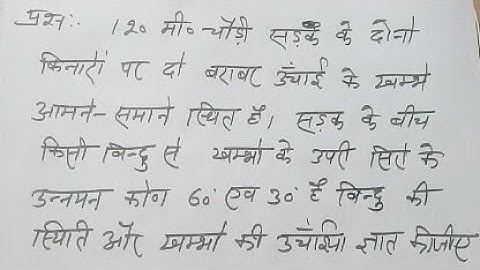 प्रश्न:. 120 मी० चौड़ी सड़क के दोनो
किनारों पर दो बराबर उँचाई के खम्भे
आमने-समाने स्थित है। सड़क के बीच
किसी बिन्दु से खम्भो के उपरी सिरो के
उन्नयन कोण 60° एव 30° है बिन्दु की
स्थिति और खम्भो की उँचाई ज्ञात कीजीए